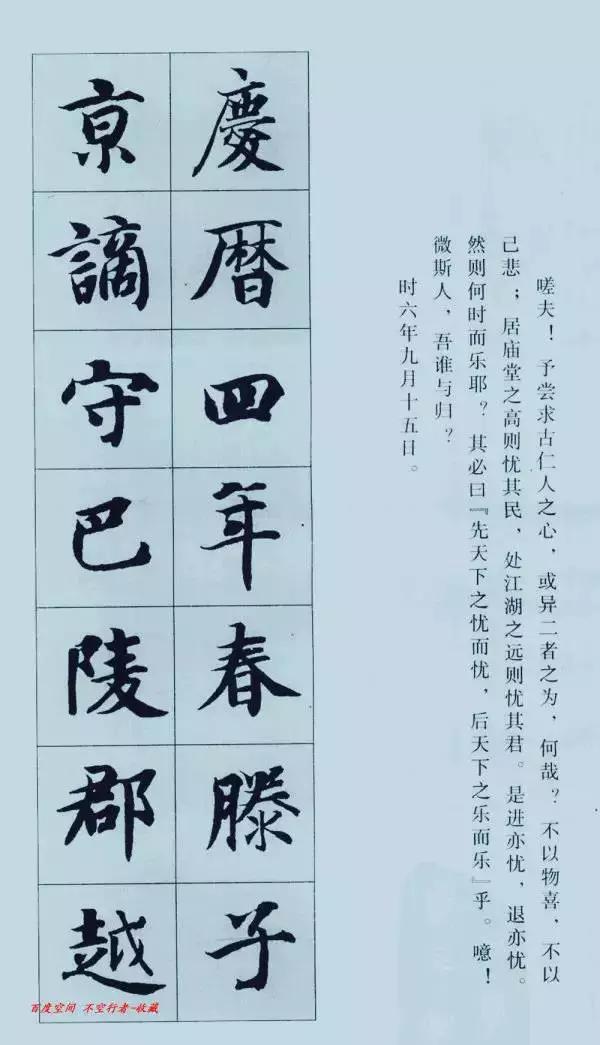 嗟夫！予尝求古仁人之心，或异二者之为，何哉？不以物喜，不以
己悲；居庙堂之高则忧其民，处江湖之远则忧其君。是进亦忧，退亦忧。
然则何时而乐耶？其必曰『先天下之忧而忧，后天下之乐而乐』乎。噫！
微斯人，吾谁与归？
时六年九月十五日。
慶暦四年春滕子
亰謫守巴陵郡越
百度空间 不空行者-收藏